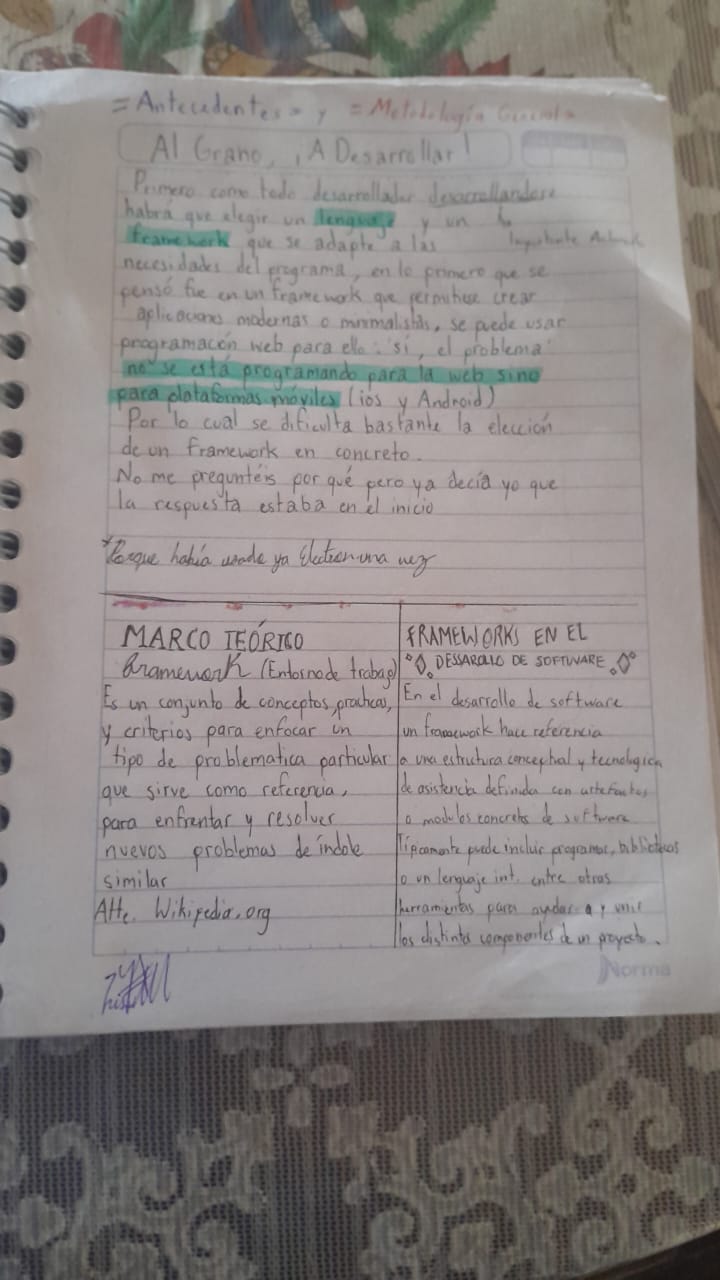 = Antecedentes = y = Metodología General =
Al Grano, ¡A Desarrollar!
Primero como todo desarrollador desarrollandore
habrá que alegir un lenguaje y un
Importante
framework que se adapte a las
necesidades del programa, en lo primero que se
pensó fue en un framework que permitiese crear
aplicaciones modernas o minimalistas, se puede usar
programación web para ello: sí, el problema:
no se está programando para la web sino
para plataformas móviles (ios y Android)
Por lo cual se dificulta bastante la elección
de un framework en concreto.
No me preguntéis por qué pero ya decía yo que
la respuesta estaba en el inicio
*Porque había usado ya Electron una vez
MARCO TEÓRICO
Framework (Entorno de trabajo)
Es un conjunto de conceptos, practicas,
y criterios para enfocar un
tipo de problematica particular
que sirve como referencia,
para enfrentar y resolver
nuevos problemas de índole
similar
Atte. Wikipedia.org
FRAMEWORKS EN EL
DESSAROLLO DE SOFTWARE
En el desarrollo de software
un framework hace referencia
a una estructura conceptual y tecnologica
de asistencia definida con artefactos
o modulos concretos de software
Típicamente puede incluir programas, bibliotecas
o un lenguaje int. entre otras
herramientas para ayudar a y unir
los distintos componentes de un proyecto.
Norma